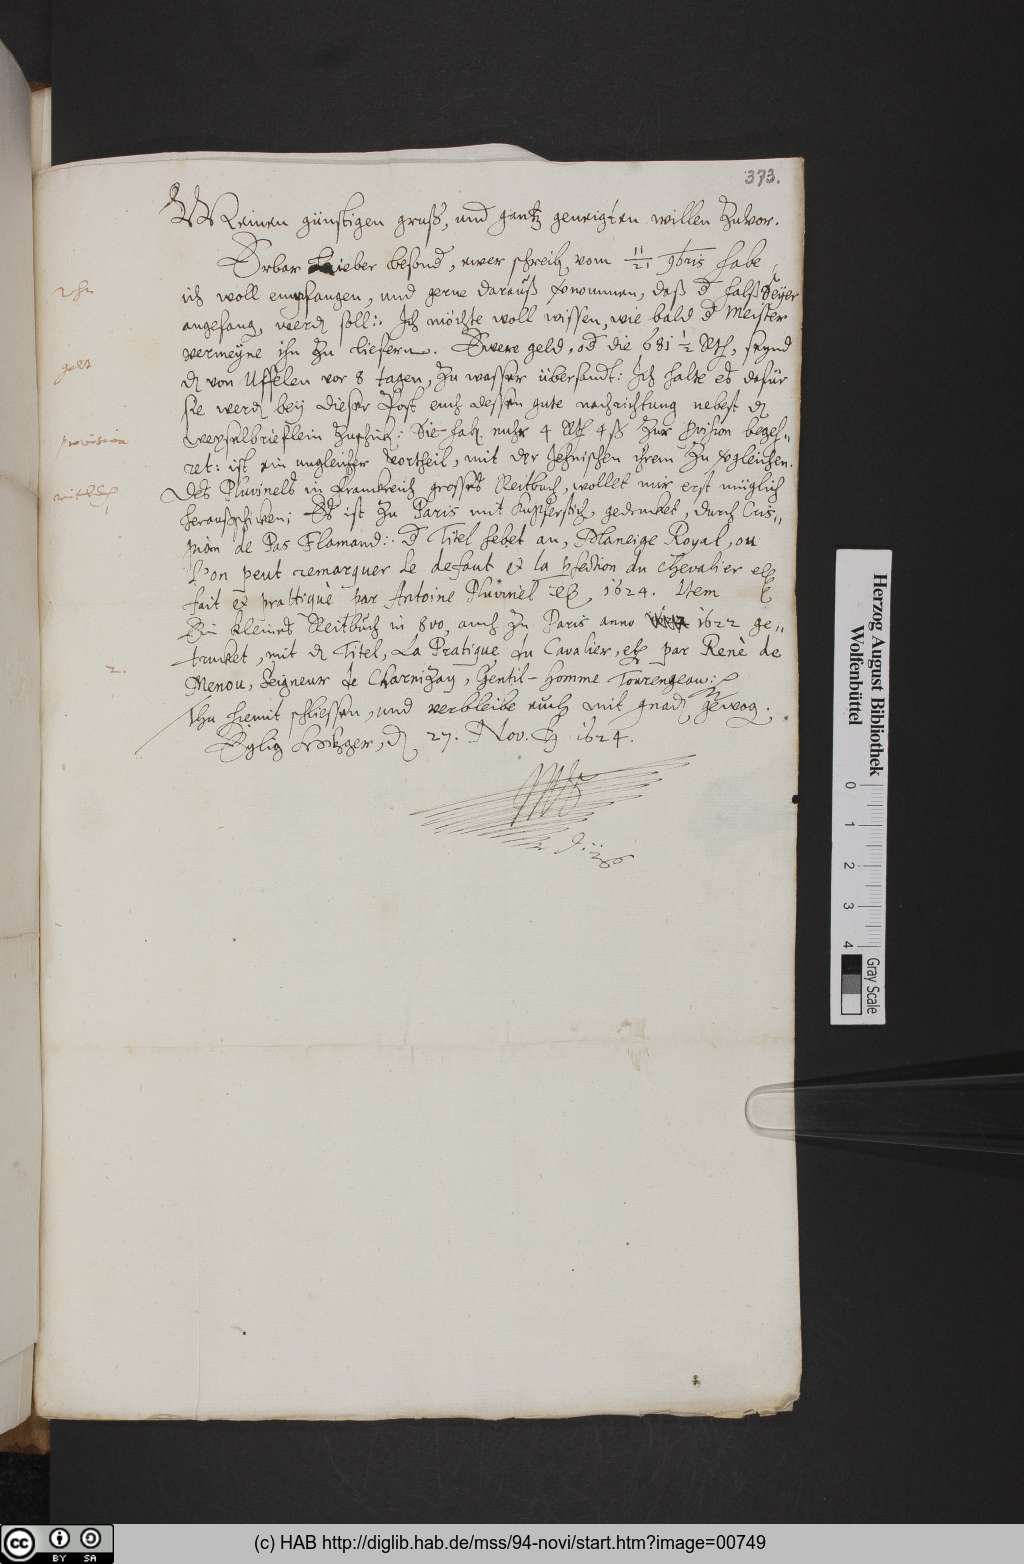 373.
Meinen günstigen gruß, und gantz geneigten willen zuvor.
Erbar lieber besond, ewer schreib. vom 11/21 9bris habe
ich woll empfangen, und gerne darauß vernommen, daß d halß
angefang. werd soll:. Ich möchte woll wissen, wie bald d Meister
vermeyne ihn zu liefern. Ewere geld, od die 681 1/2 Rth, seynd
von Uffelen vor 8 tagen, zu wasser übersandt: Ich halte es dafür
sie werd beÿ dieser Post euch dessen gute nachrichtung nebest
wexselbrieflein zuschick: Sie hab. mehr 4 Rth 4 ß zur pvision begeh„
ret: ist ein ungleicher vortheil, mit der Jehnischen ihrem zu vgleichen.
Des Pluvinels in Franckreich grosses Reitbuch, wollet mir erst müglich
heraußschicken; Es ist zu Paris mit Kupfferstich. gedrucket, durch Cris„
pian de Pas Flamand:. d Titel hebet an, Maneige Royal, ou
l'on peut remarquer le defaut et la pfection du chevalier etc
fait et prattiqué par Antoine Pluvinel etc, 1624. Item
Ein kleines Reitbuch in 8vo, auch zu Paris anno 1622 ge„
trucket, mit Titel, La Pratique du Cavalier, etc par Renè de
Menou, Seigneur de Charnizay, Gentil-homme Tourengeau:
Thu hiemit schliessen, und verbleibe euch mit gnad gewog.
27. Nov. 1624.
geld
provision
2.
Herzog August Bibliothek
Wolfenbüttel
0 1 2 3 4
Gray Scale
cc BY SA
(c) HAB http://diglib.hab.de/mss/94-novi/start.htm?image=00749